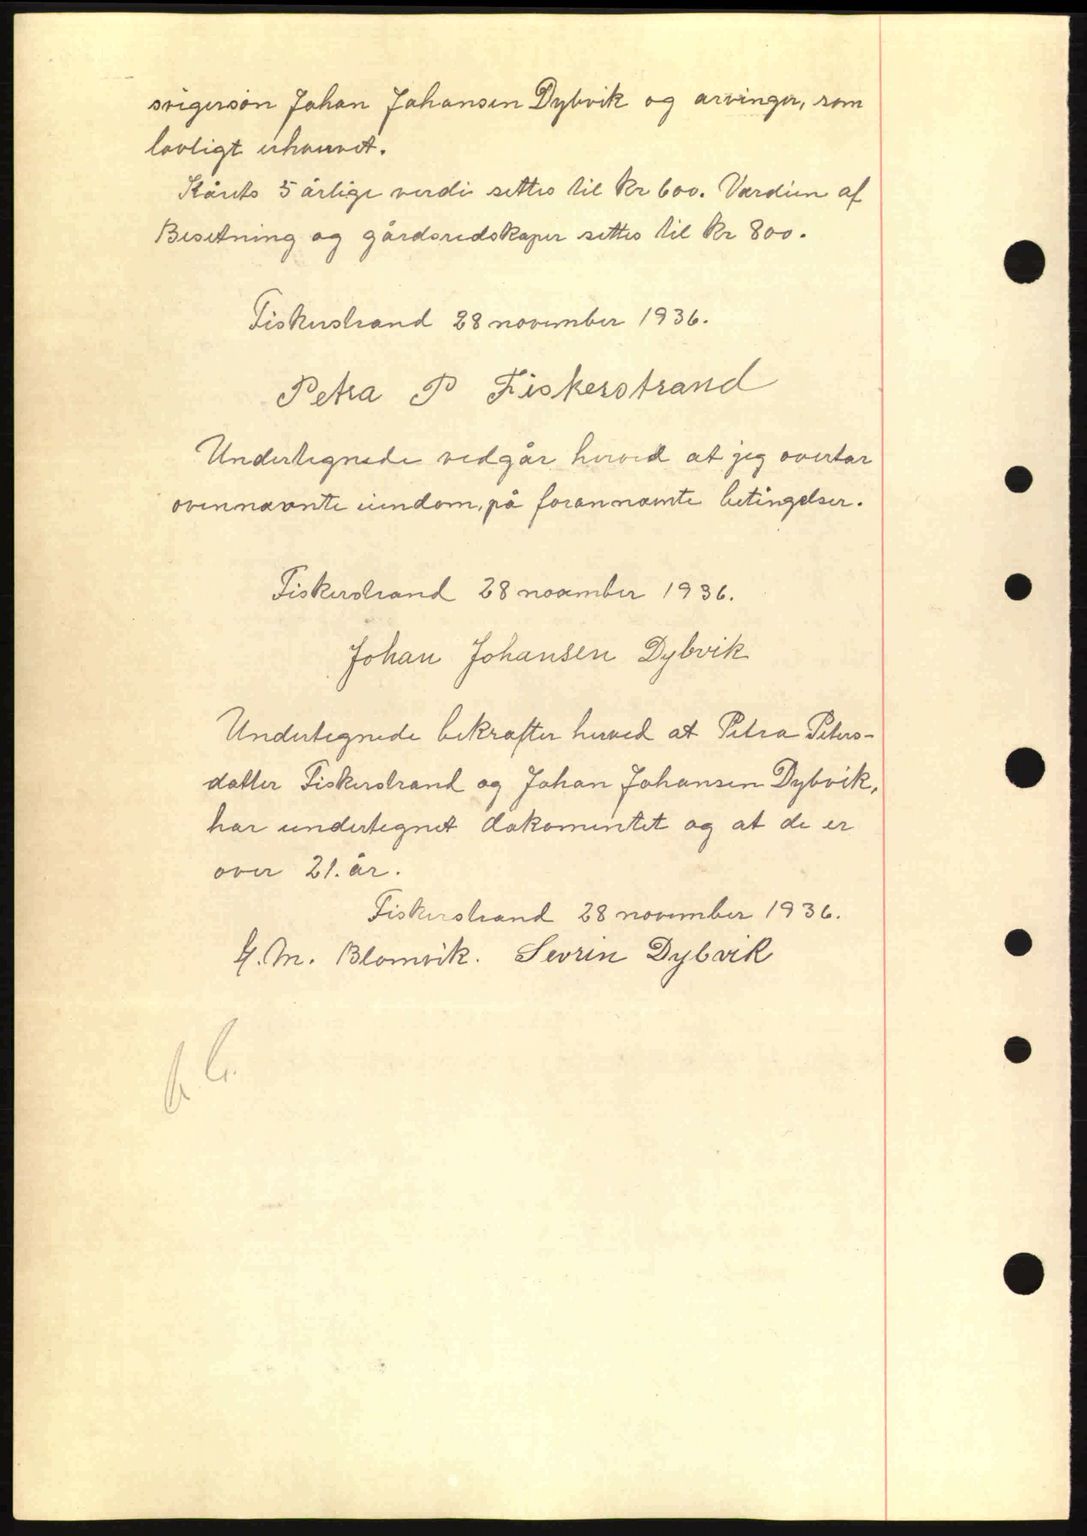 svigersøn Johan Johansen Dybvik og arvinger, som
lovligt erhvervet.
Kårets 5 årlige verdi settes til kr 600. Værdien af
Besetning og gårdsredskaper settes til kr 800.
Fiskerstrand 28 november 1936.
Petra P Fiskerstrand
Undertegnede vedgår herved at jeg overtar
ovennævnte eiendom, på forannævnte betingelser.
Fiskerstrand 28 november 1936.
Johan Johansen Dybvik
Undertegnede bekræfter herved at Petra Peters-
datter Fiskerstrand og Johan Johansen Dybvik,
har undertegnet dokomentet og at de er
over 21. år.
Fiskerstrand 28 november 1936.
M. Blomvik. Sevrin Dybvik